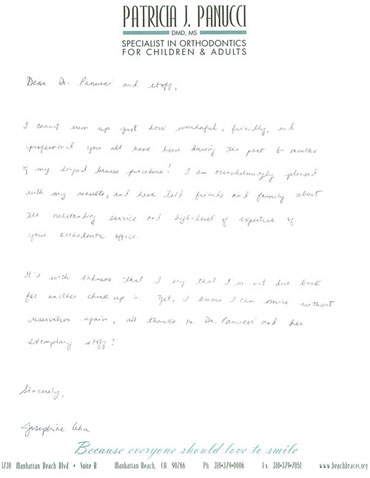 PATRICIA J. PANUCCI
DMD, MS
SPECIALIST IN ORTHODONTICS
FOR CHILDREN & ADULTS
Dear Dr. Panucci and staff,
I cannot sum up just how wonderful, friendly, and
professional you all have been during the past 6 months
of my braces procedure! I am overwhelmingly pleased
with my results, and have told friends and family about
the outstanding service and high-level of expertise of
your orthodontic office.
It's with sadness that I say that I'm not due back
for another check up . Yet, I know I can smile without
reservation again, all thanks to Dr. Panucci and her
exemplary staff!
Sincerely,
Josephine
Because everyone should love to smile
1730 Manhattan Beach Blvd • Suite B Manhattan Beach, CA 90266 Ph 310•379•0006 Fx 310•379•7051 www.beachbraces.net